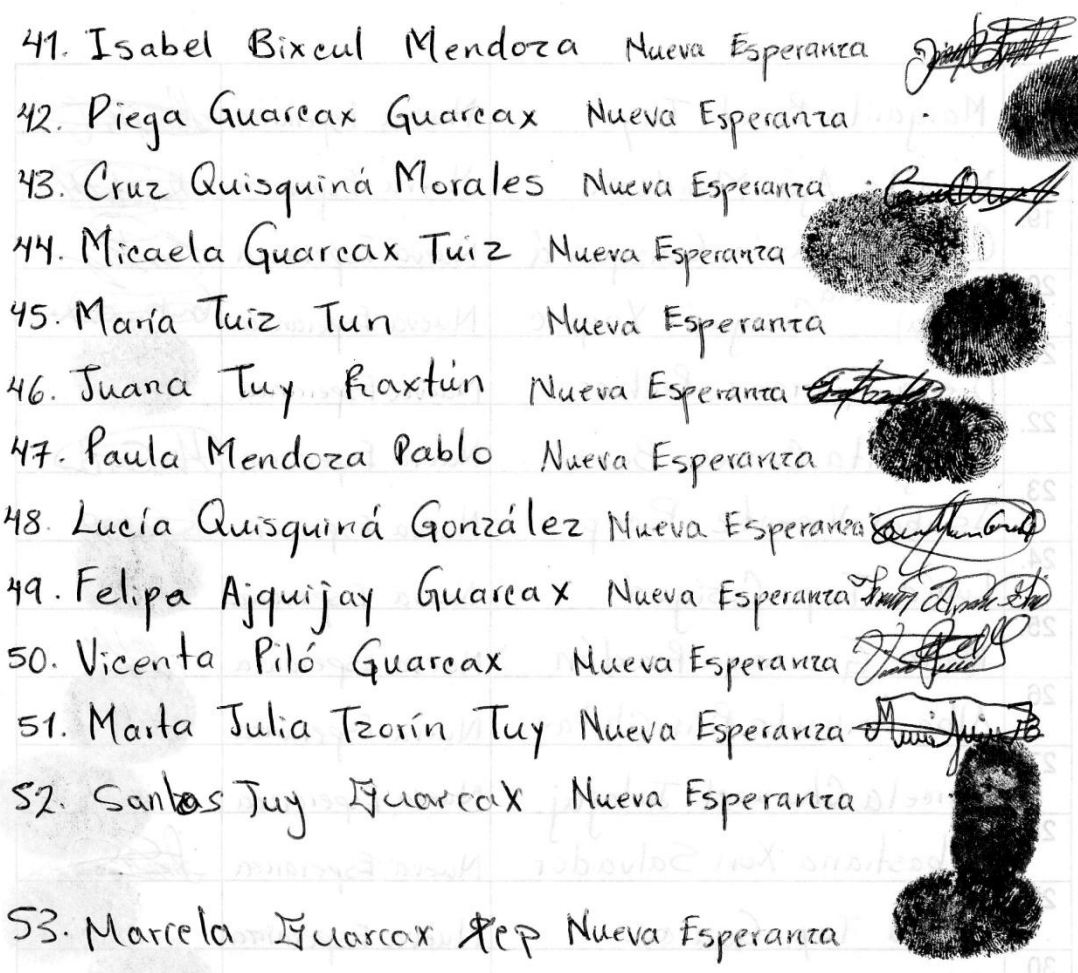 41. Isabel Bixcul Mendoza Nueva Esperanza
42. Piega Guarcax Guarcax Nueva Esperanza
43. Cruz Quisquiná Morales Nueva Esperanza
44. Micaela Guarcax Tuiz Nueva Esperanza
45. María Tuiz Tun Nueva Esperanza
46. Juana Tuy Raxtún Nueva Esperanza
47. Paula Mendoza Pablo Nueva Esperanza
48. Lucía Quisquiná González Nueva Esperanza
49. Felipa Ajquijay Guarcax Nueva Esperanza
50. Vicenta Piló Guarcax Nueva Esperanza
51. Marta Julia Tzorín Tuy Nueva Esperanza
52. Santos Tuy Guarcax Nueva Esperanza
53. Marcela Guarcax Nueva Esperanza